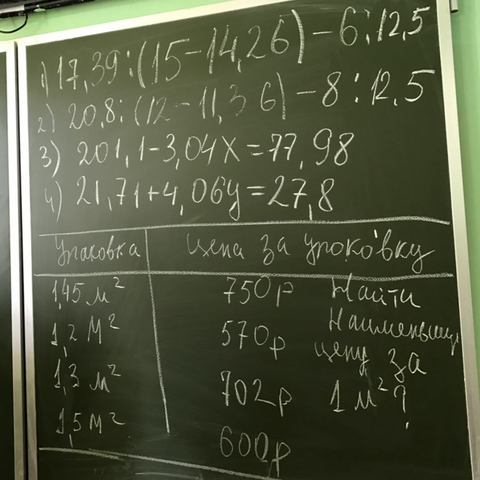 1) 17,39:(15-14,26)-6:12,5
2) 20,8:(12-11,36)-8:12,5
3) 201,1-3,04x=77,98
4) 21,71+4,06y=27,8
Упаковка цена за упоковку
1,45 м² 750р Найти
1,2 м² 570р Наименьшую
1,3 м² 702р цену за
1,5 м² 600р 1 м²?